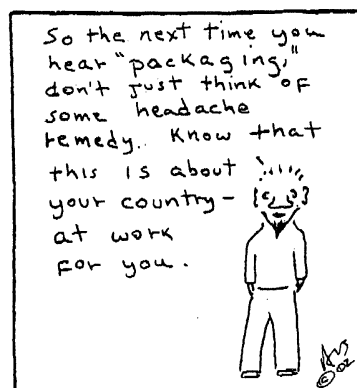 So the next time you
hear "packaging,"
don't just think of
some headache
remedy. Know that
this is about
your country-
at work
for you.
© 02